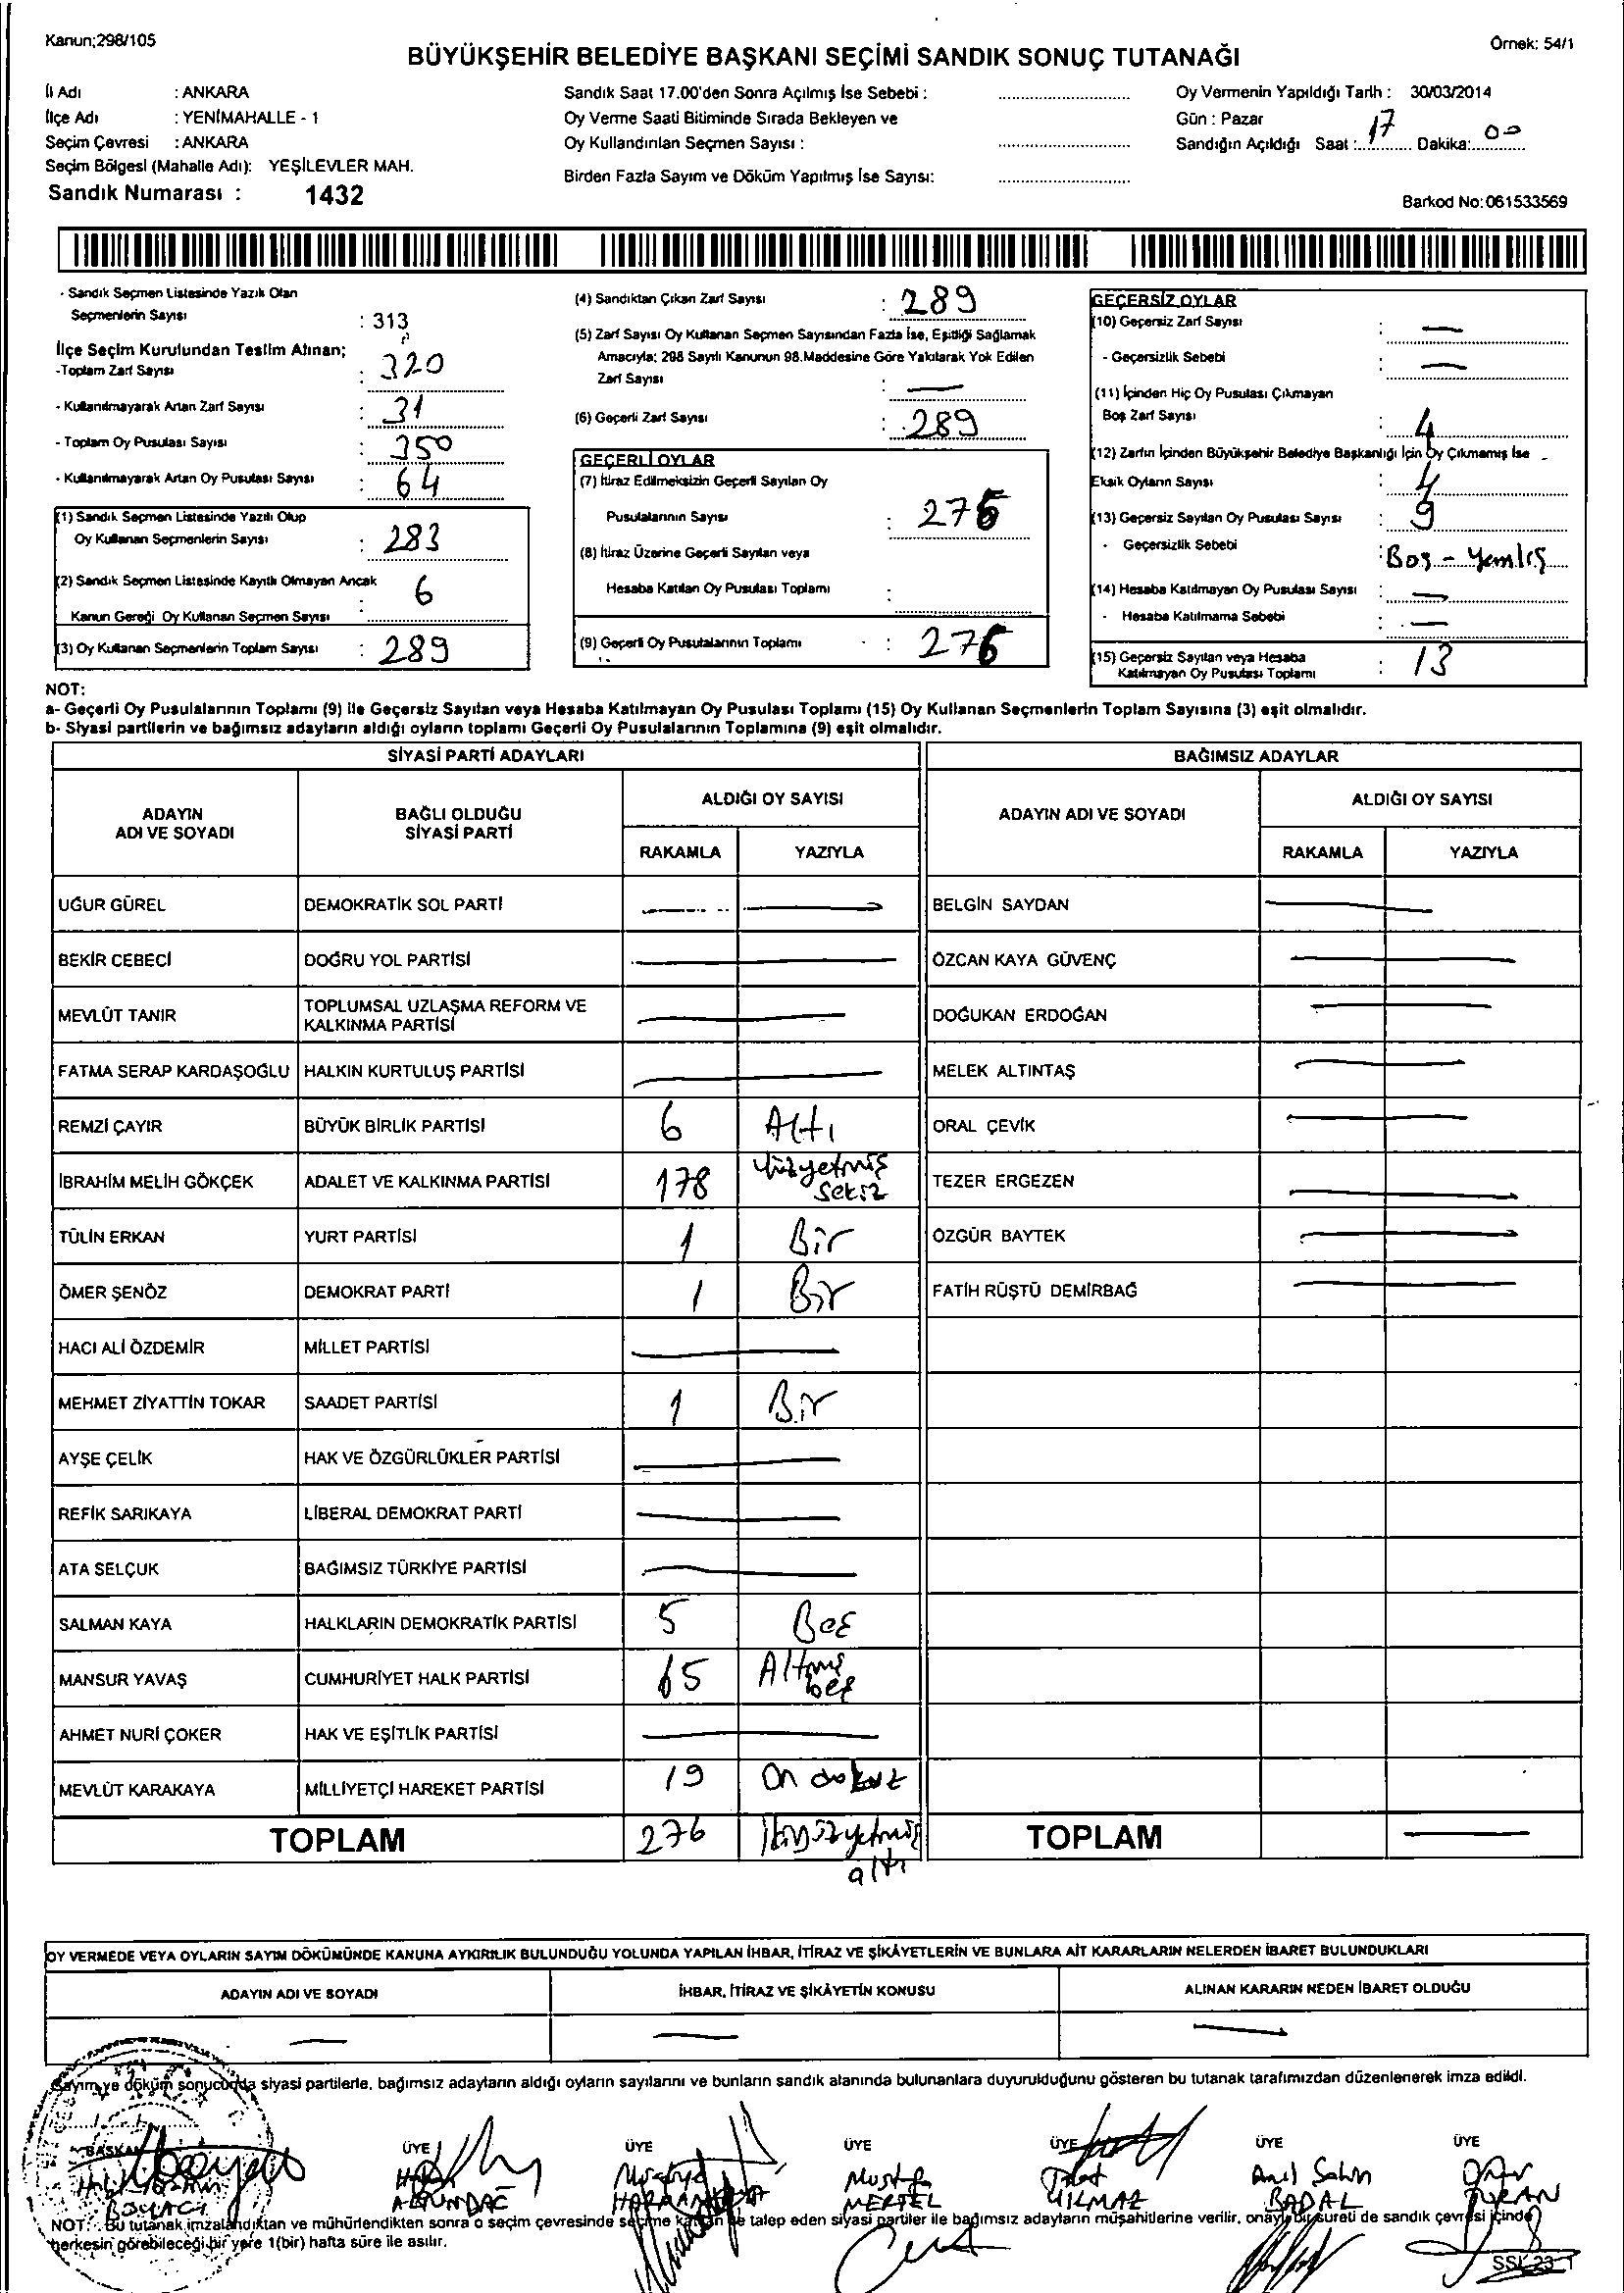 Kanun;298/105
Örnek: 54/1
BÜYÜKŞEHİR BELEDİYE BAŞKANI SEÇİMİ SANDIK SONUÇ TUTANAĞI
İl Adı : ANKARA
İlçe Adı : YENİMAHALLE - 1
Seçim Çevresi : ANKARA
Seçim Bölgesi (Mahalle Adı): YEŞİLEVLER MAH.
Sandık Numarası : 1432
Sandık Saat 17.00'den Sonra Açılmış İse Sebebi :
Oy Verme Saati Bitiminde Sırada Bekleyen ve
Oy Kullandırılan Seçmen Sayısı :
Birden Fazla Sayım ve Döküm Yapılmış İse Sayısı:
Oy Vermenin Yapıldığı Tarih : 30/03/2014
Gün : Pazar
Sandığın Açıldığı Saat : 17 Dakika: 00
Barkod No: 061533569
- Sandık Seçmen Listesinde Yazılı Olan
Seçmenlerin Sayısı : 313
İlçe Seçim Kurulundan Teslim Alınan;
-Toplam Zarf Sayısı : 320
- Kullanılmayarak Artan Zarf Sayısı : 31
- Toplam Oy Pusulası Sayısı : 350
- Kullanılmayarak Artan Oy Pusulası Sayısı : 64
(1) Sandık Seçmen Listesinde Yazılı Olup
Oy Kullanan Seçmenlerin Sayısı : 283
(2) Sandık Seçmen Listesinde Kayıtlı Olmayan Ancak
Kanun Gereği Oy Kullanan Seçmen Sayısı : 6
(3) Oy Kullanan Seçmenlerin Toplam Sayısı : 289
(4) Sandıktan Çıkan Zarf Sayısı : 289
(5) Zarf Sayısı Oy Kullanan Seçmen Sayısından Fazla İse, Eşitliği Sağlamak
Amacıyla; 298 Sayılı Kanunun 98.Maddesine Göre Yakılarak Yok Edilen
Zarf Sayısı : —
(6) Geçerli Zarf Sayısı : 289
GEÇERLİ OYLAR
(7) İtiraz Edilmeksizin Geçerli Sayılan Oy
Pusulalarının Sayısı : 276
(8) İtiraz Üzerine Geçerli Sayılan veya
Hesaba Katılan Oy Pusulası Toplamı :
(9) Geçerli Oy Pusulalarının Toplamı : 276
GEÇERSİZ OYLAR
(10) Geçersiz Zarf Sayısı : —
- Geçersizlik Sebebi : —
(11) İçinden Hiç Oy Pusulası Çıkmayan
Boş Zarf Sayısı : 4
(12) Zarfın İçinden Büyükşehir Belediye Başkanlığı İçin Oy Çıkmamış İse
Eksik Oyların Sayısı : 4
(13) Geçersiz Sayılan Oy Pusulası Sayısı : 9
- Geçersizlik Sebebi : Boş - Yemlış
(14) Hesaba Katılmayan Oy Pusulası Sayısı : —
- Hesaba Katılmama Sebebi : —
(15) Geçersiz Sayılan veya Hesaba
Katılmayan Oy Pusulası Toplamı : 13
NOT:
a- Geçerli Oy Pusulalarının Toplamı (9) ile Geçersiz Sayılan veya Hesaba Katılmayan Oy Pusulası Toplamı (15) Oy Kullanan Seçmenlerin Toplam Sayısına (3) eşit olmalıdır.
b- Siyasi partilerin ve bağımsız adayların aldığı oyların toplamı Geçerli Oy Pusulalarının Toplamına (9) eşit olmalıdır.
SİYASİ PARTİ ADAYLARI
ADAYIN
ADI VE SOYADI
BAĞLI OLDUĞU
SİYASİ PARTİ
ALDIĞI OY SAYISI
RAKAMLA YAZIYLA
BAĞIMSIZ ADAYLAR
ADAYIN ADI VE SOYADI
ALDIĞI OY SAYISI
RAKAMLA YAZIYLA
UĞUR GÜREL DEMOKRATİK SOL PARTİ — — BELGİN SAYDAN —
BEKİR CEBECİ DOĞRU YOL PARTİSİ — ÖZCAN KAYA GÜVENÇ —
MEVLÜT TANIR TOPLUMSAL UZLAŞMA REFORM VE
KALKINMA PARTİSİ — DOĞUKAN ERDOĞAN —
FATMA SERAP KARDAŞOĞLU HALKIN KURTULUŞ PARTİSİ — MELEK ALTINTAŞ —
REMZİ ÇAYIR BÜYÜK BİRLİK PARTİSİ 6 Altı ORAL ÇEVİK —
İBRAHİM MELİH GÖKÇEK ADALET VE KALKINMA PARTİSİ 178 Yüzyetmiş
sekiz TEZER ERGEZEN —
TÜLİN ERKAN YURT PARTİSİ 1 Bir ÖZGÜR BAYTEK —
ÖMER ŞENÖZ DEMOKRAT PARTİ 1 Bir FATİH RÜŞTÜ DEMİRBAĞ —
HACI ALİ ÖZDEMİR MİLLET PARTİSİ —
MEHMET ZİYATTİN TOKAR SAADET PARTİSİ 1 Bir
AYŞE ÇELİK HAK VE ÖZGÜRLÜKLER PARTİSİ —
REFİK SARIKAYA LİBERAL DEMOKRAT PARTİ —
ATA SELÇUK BAĞIMSIZ TÜRKİYE PARTİSİ —
SALMAN KAYA HALKLARIN DEMOKRATİK PARTİSİ 5 Beş
MANSUR YAVAŞ CUMHURİYET HALK PARTİSİ 65 Altmış
beş
AHMET NURİ ÇOKER HAK VE EŞİTLİK PARTİSİ —
MEVLÜT KARAKAYA MİLLİYETÇİ HAREKET PARTİSİ 19 On dokuz
TOPLAM 276 İkiyüzyetmiş
altı
TOPLAM —
OY VERMEDE VEYA OYLARIN SAYIM DÖKÜMÜNDE KANUNA AYKIRILIK BULUNDUĞU YOLUNDA YAPILAN İHBAR, İTİRAZ VE ŞİKÂYETLERİN VE BUNLARA AİT KARARLARIN NELERDEN İBARET BULUNDUKLARI
ADAYIN ADI VE SOYADI İHBAR, İTİRAZ VE ŞİKÂYETİN KONUSU ALINAN KARARIN NEDEN İBARET OLDUĞU
— — —
Sayım ve döküm sonucunda siyasi partilerle, bağımsız adayların aldığı oyların sayılarını ve bunların sandık alanında bulunanlara duyurulduğunu gösteren bu tutanak tarafımızdan düzenlenerek imza edildi.
BAŞKAN ÜYE ÜYE ÜYE ÜYE ÜYE ÜYE
Mustafa Talat Anıl Sahin
BOYACI ALTUNDAĞ MERTEL YILMAZ BADAL TURAN
NOT: Bu tutanak imzalandıktan ve mühürlendikten sonra o seçim çevresinde seçime katılan ve talep eden siyasi partiler ile bağımsız adayların müşahitlerine verilir, onaylı bir sureti de sandık çevresi içinde
herkesin görebileceği bir yere 1(bir) hafta süre ile asılır.